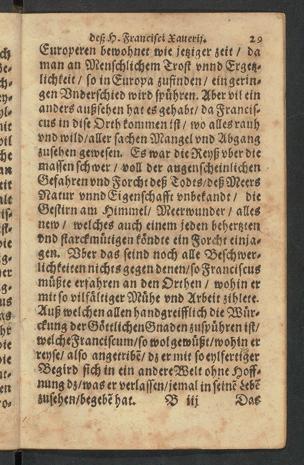 deß H. Francisci Xauerij. 29
Europeren bewohnet wie jetziger zeit / da
man an Menschlichem Trost vnnd Ergetz-
lichkeit / so in Europa zufinden / ein gerin-
gen Vnderschied wird spühren. Aber vil ein
anders außsehen hat es gehabt / da Francis-
cus in dise Orth kommen ist / wo alles rauh
vnd wild / aller sachen Mangel vnd Abgang
zusehen gewesen. Es war die Reyß vber die
massen schwer / voll der augenscheinlichen
Gefahren vnd Forcht deß Todts / deß Meers
Natur vnnd Eigenschafft vnbekandt / die
Gestirn am Himmel / Meerwunder / alles
new / welches auch einem jeden behertzten
vnd starckmütigen köndte ein Forcht einja-
gen. Vber das seind noch alle Beschwer-
lichkeiten nichts gegen denen / so Franciscus
müßte erfahren an den Orthen / wohin er
mit so vilfältiger Mühe vnd Arbeit zihlete.
Auß welchen allen handgreifflich die Wür-
ckung der Götlichen Gnaden zuspühren ist /
welche Franciscum / so wol gewüßt / wohin er
reyse / also angetribē / dz er mit so eylfertiger
Begird sich in ein andere Welt ohne Hoff-
nung dz / was er verlassen / jemal in seinē Lebē
zusehen / begebē hat. B iij Das